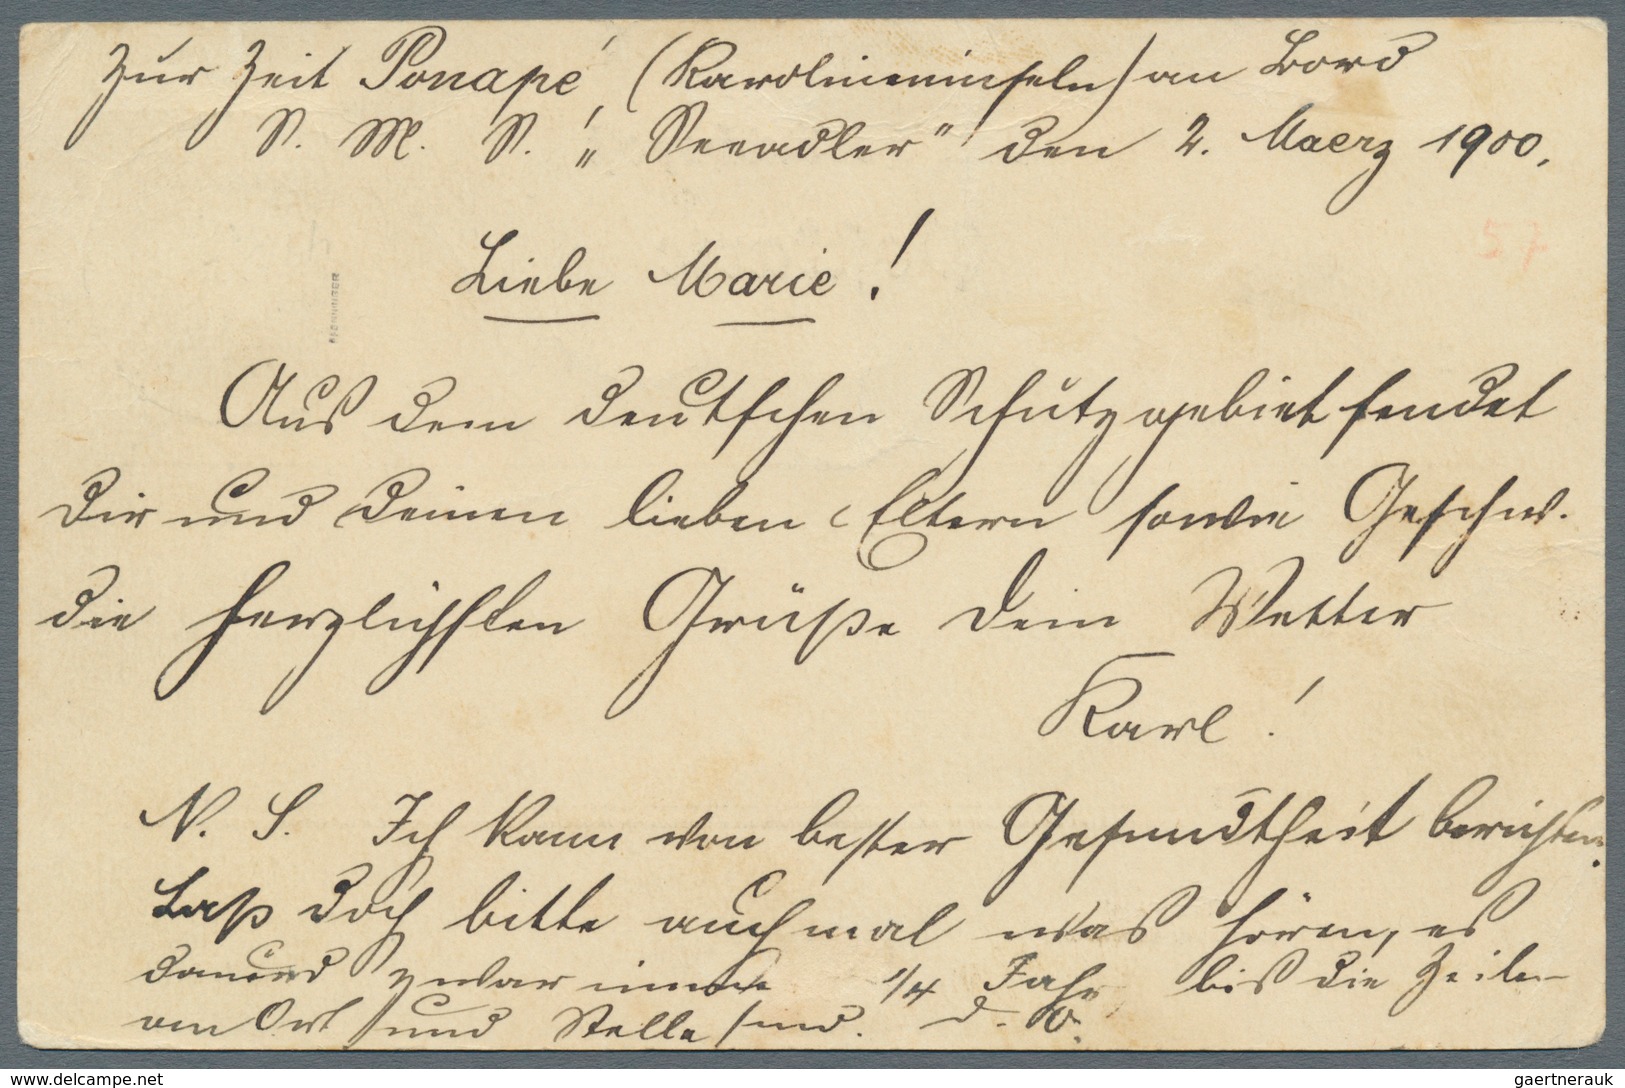 Zur Zeit Ponapé, (Karolineninseln) an Bord
S. M. S. „Seeadler" den 2. Maerz 1900.
57
Liebe Marie!
Aus dem deutschen Schutzgebiet sendet
Dir und Deinen lieben Eltern sowie Geschw.
die herzlichsten Grüße Dein Vetter
Karl!
N. S. Ich kann von bester Gesundtheit berichten.
Laß doch bitte auch mal was hören, es
dauerd zwar immer 1/4 Jahr bis die Zeilen
an Ort und Stelle sind. D. O.
© www.delcampe.net
gaertnerauk